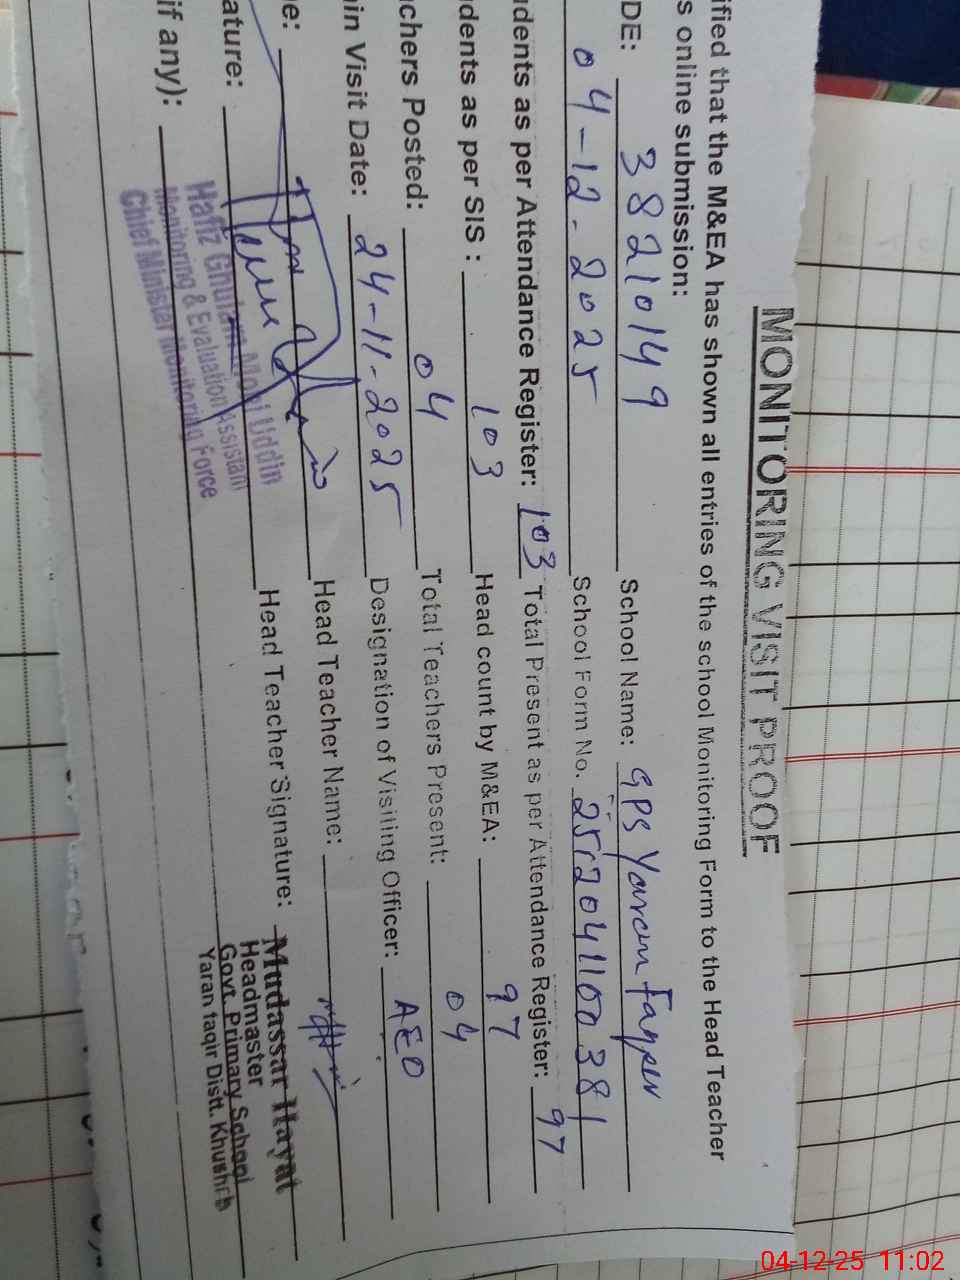 MONITORING VISIT PROOF
ified that the M&EA has shown all entries of the school Monitoring Form to the Head Teacher
s online submission:
DE: 38210149 School Name: GPS Yaran Faqeer
04-12-2025 School Form No. 251204110038 1
udents as per Attendance Register: 103 Total Present as per Attendance Register: 97
udents as per SIS : 103 Head count by M&EA: 97
achers Posted: 04 Total Teachers Present: 04
in Visit Date: 24-11-2025 Designation of Visiting Officer: AEO
e: Head Teacher Name:
ature: Head Teacher Signature:
if any):
Hafiz Ghulam Mohi Uddin
Monitoring & Evaluation Assistant
Chief Minister Monitoring Force
Mudassar Hayat
Headmaster
Govt. Primary School
Yaran faqir Distt. Khushab
04-12-25 11:02